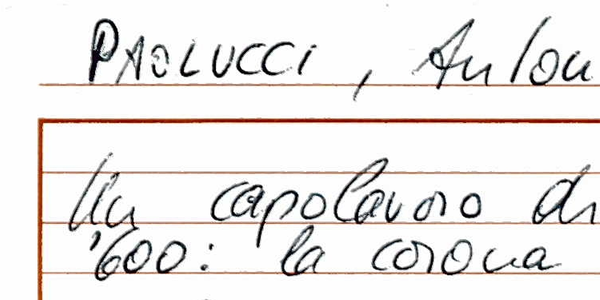 PAOLUCCI, Anton
Un capolavoro di
'600: la corona